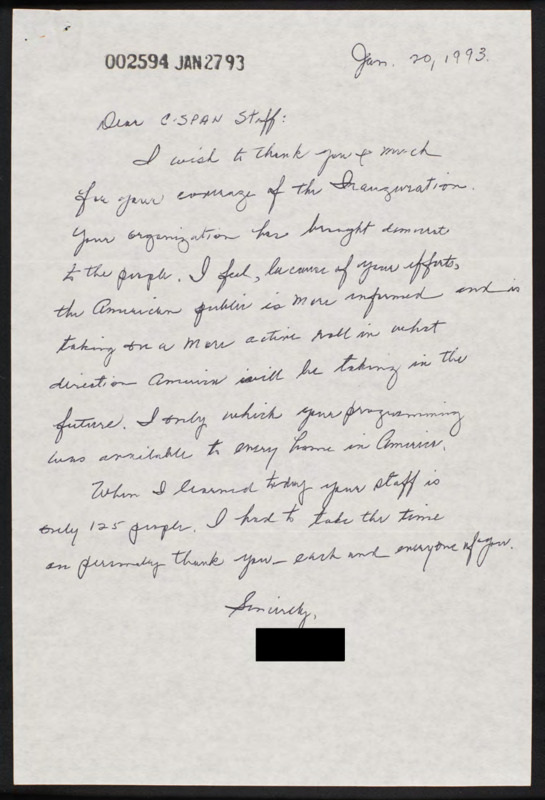 002594 JAN2793
Jan. 20, 1993.
Dear C-SPAN Staff:
I wish to thank you so much
for your coverage of the Inauguration.
Your organization has brought
to the people. I feel, because of your efforts,
the American public is more informed and is
taking on a more active roll in what
direction America will be taking in the
future. I only which your programming
was available to every home in America.
When I learned today your staff is
only 125 people. I had to take the time
an personaly thank you— each and everyone of you.
Sincerely,